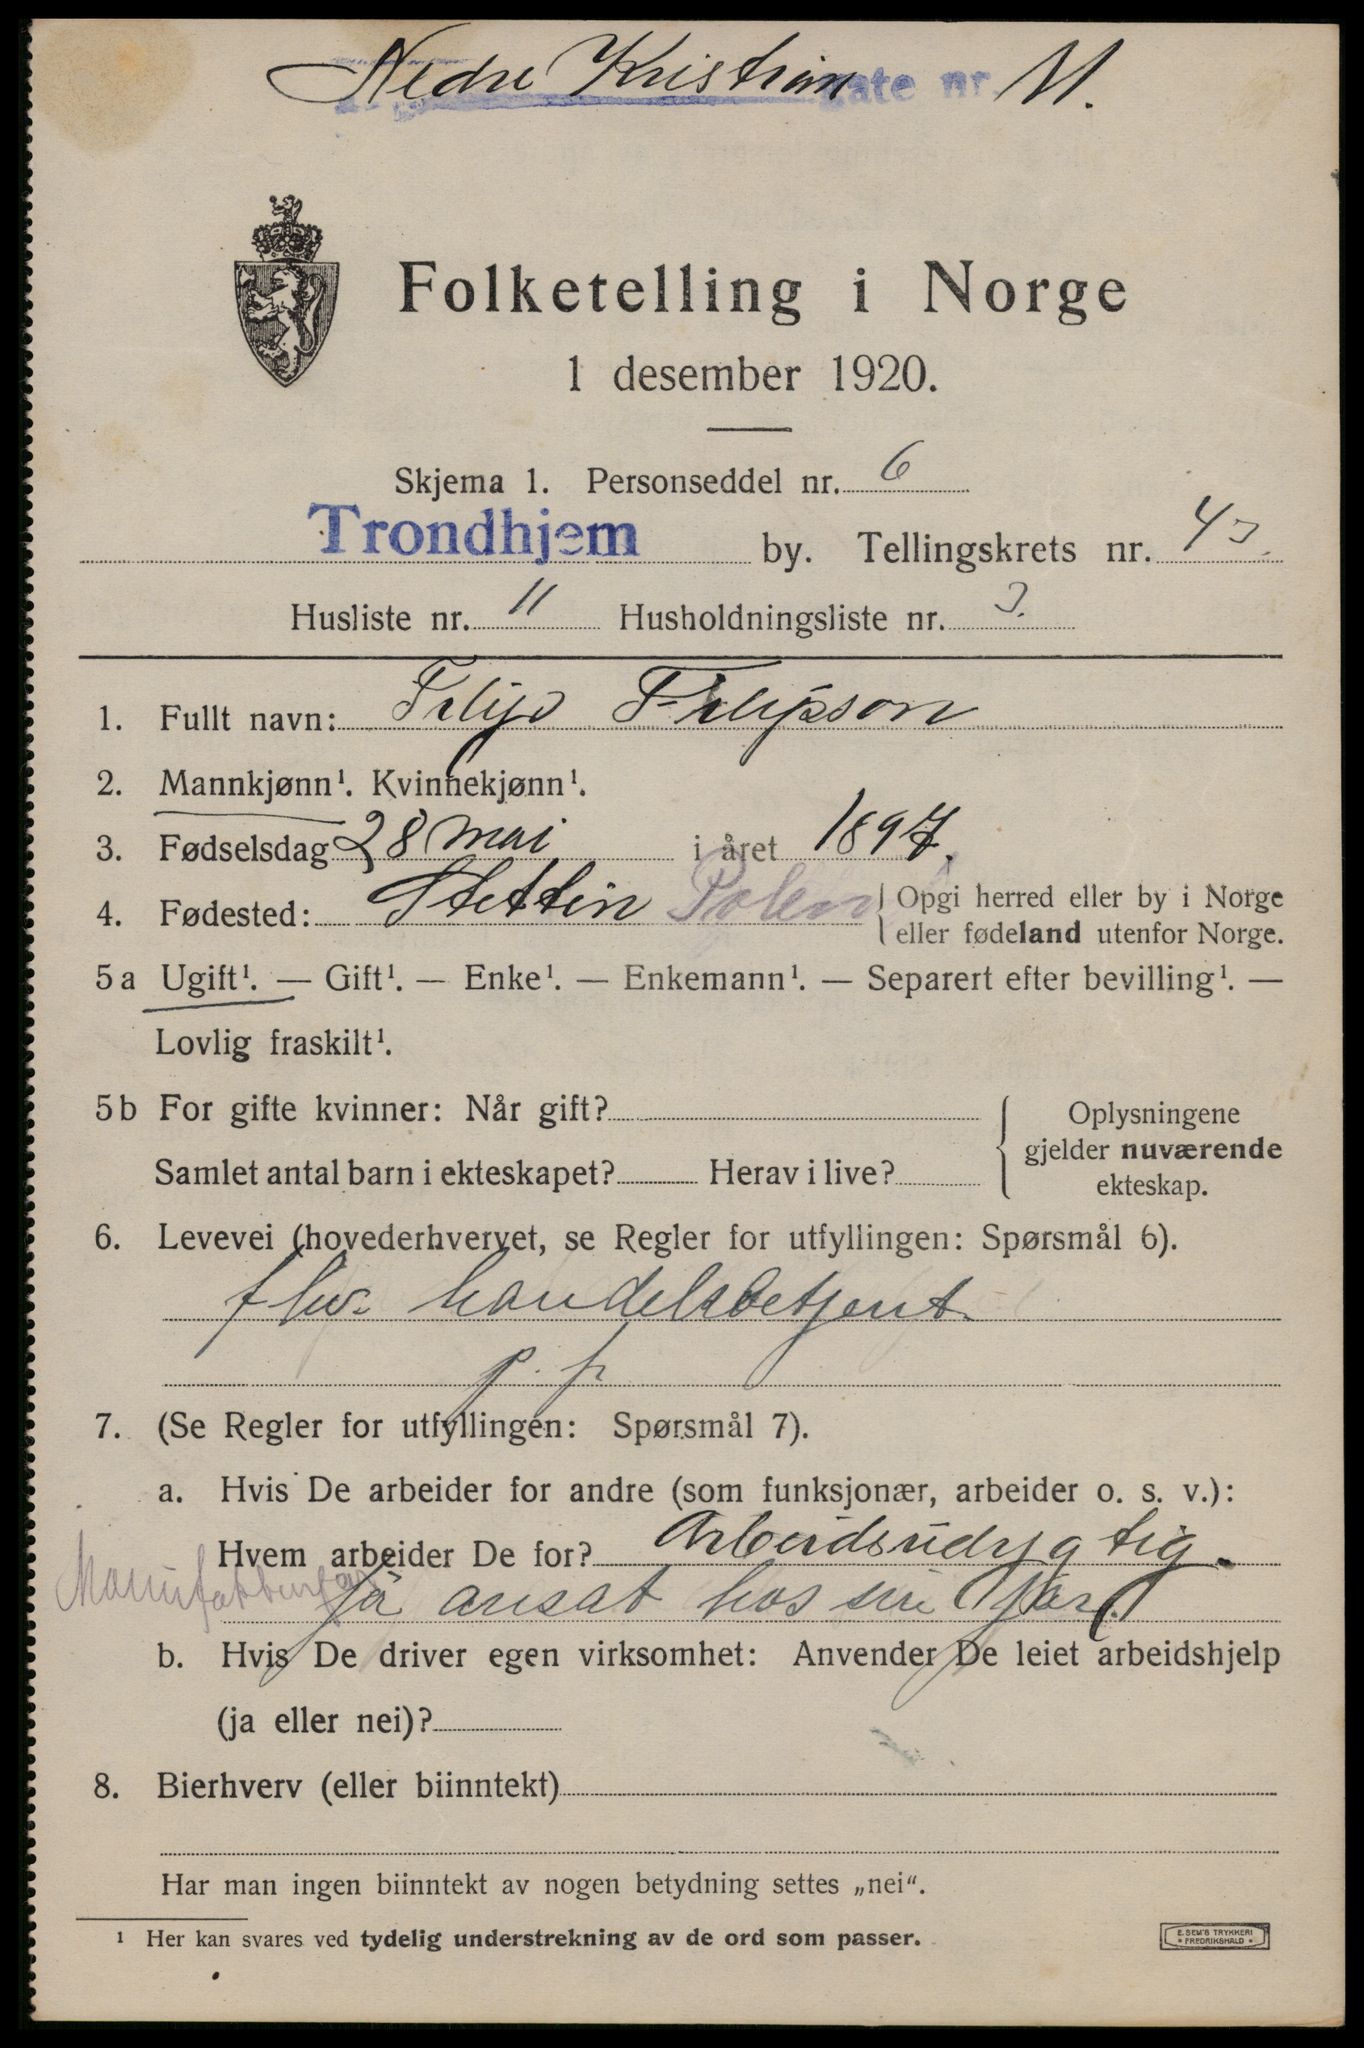 Nedre Kristian gate nr. 11.
Folketelling i Norge
1 desember 1920.
Skjema 1. Personseddel nr. 6
Trondhjem by. Tellingskrets nr. 43.
Husliste nr. 11 Husholdningsliste nr. 3.
1. Fullt navn: Filip Filipson
2. Mannkjønn¹. Kvinnekjønn¹.
3. Fødselsdag 28 mai i året 1897.
4. Fødested: Stettin Polen { Opgi herred eller by i Norge
eller fødeland utenfor Norge.
5a Ugift¹. — Gift¹. — Enke¹. — Enkemann¹. — Separert efter bevilling¹. —
Lovlig fraskilt¹.
5b For gifte kvinner: Når gift? { Oplysningene
gjelder nuværende
ekteskap.
Samlet antal barn i ekteskapet? Herav i live?
6. Levevei (hovederhvervet, se Regler for utfyllingen: Spørsmål 6).
fhv. handelsbetjent
p. f
7. (Se Regler for utfyllingen: Spørsmål 7).
a. Hvis De arbeider for andre (som funksjonær, arbeider o. s. v.):
Hvem arbeider De for? Arbeidsudygtig.
ansat hos sin far
b. Hvis De driver egen virksomhet: Anvender De leiet arbeidshjelp
(ja eller nei)?
8. Bierhverv (eller biinntekt)
Har man ingen biinntekt av nogen betydning settes „nei“.
¹ Her kan svares ved tydelig understrekning av de ord som passer.
E. SEM'S TRYKKERI
• FREDRIKSHALD •